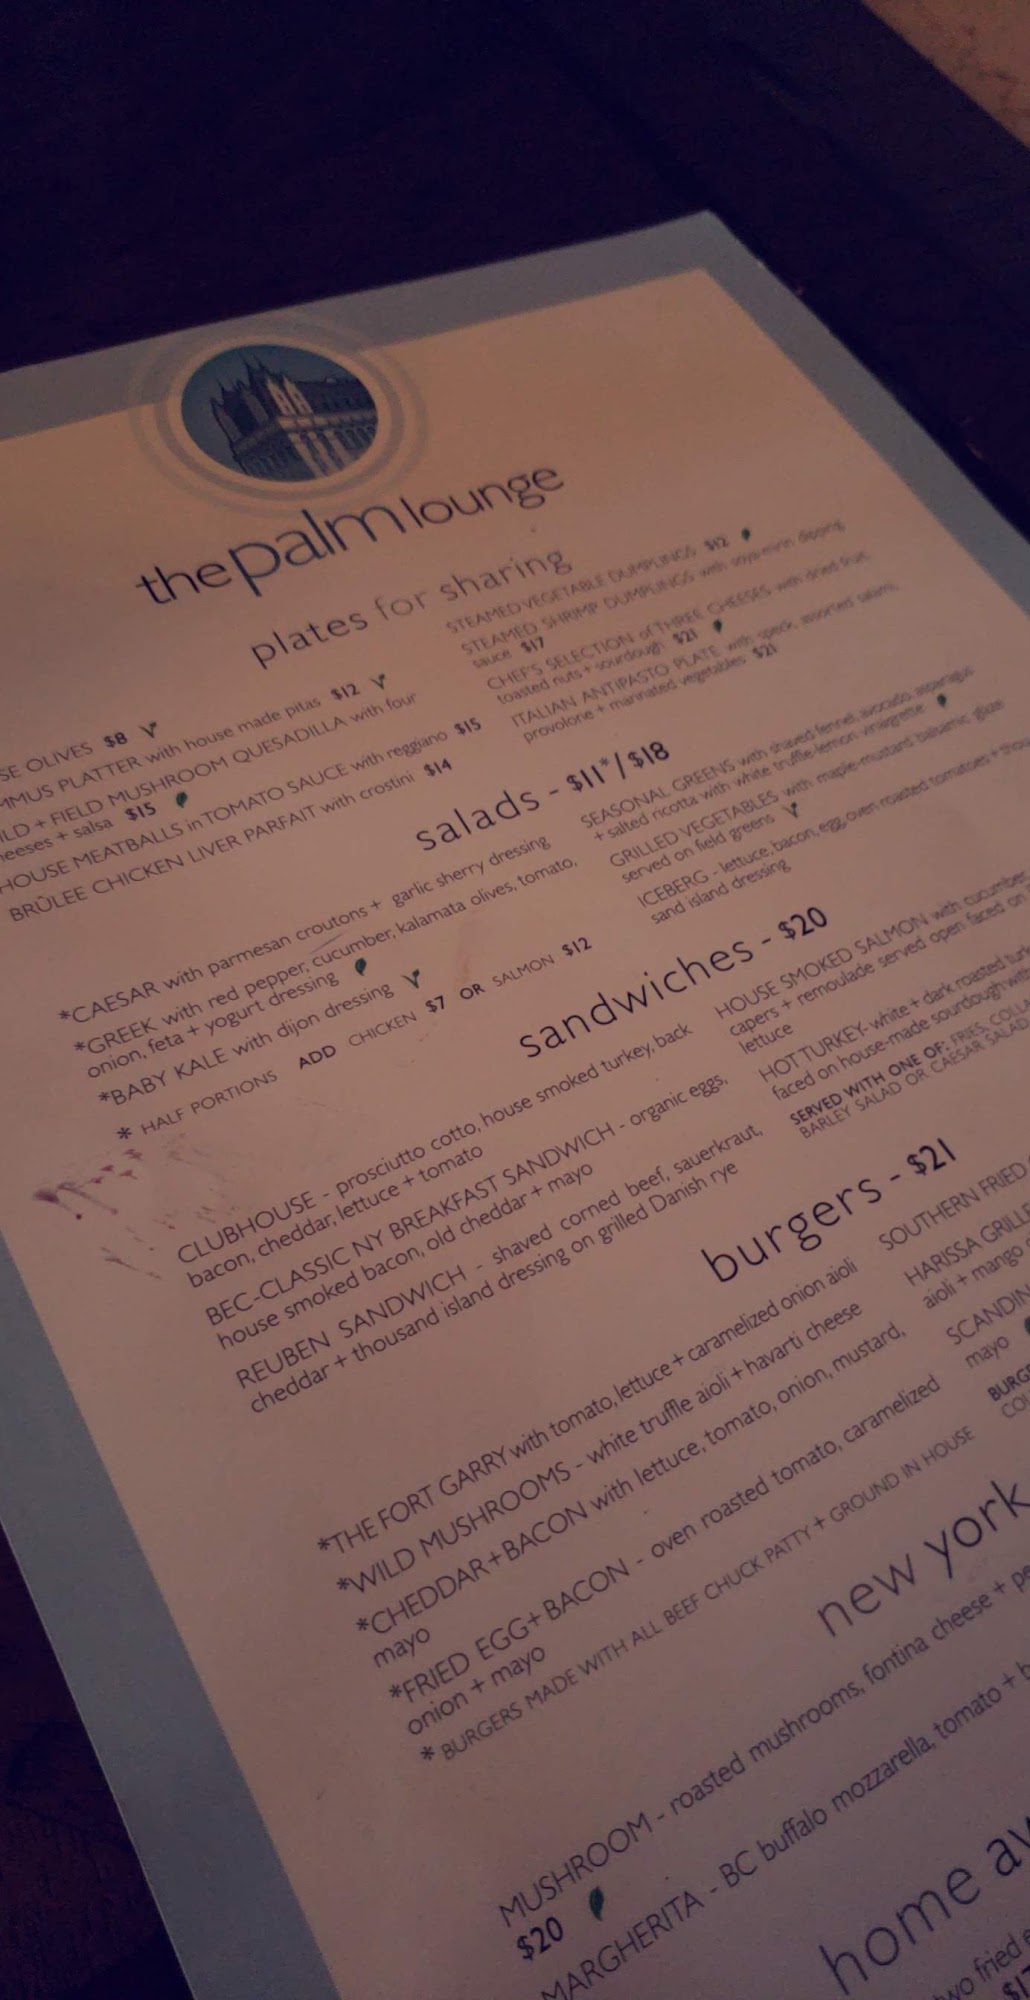 thepalmlounge
plates for sharing
SE OLIVES $8
MMUS PLATTER with house made pitas $12
ILD + FIELD MUSHROOM QUESADILLA with four
heeses + salsa $15
HOUSE MEATBALLS in TOMATO SAUCE with reggiano $15
BRÛLEE CHICKEN LIVER PARFAIT with crostini $14
STEAMED VEGETABLE DUMPLINGS $12
STEAMED SHRIMP DUMPLINGS with soya-mirin dipping
sauce $17
CHEF'S SELECTION of THREE CHEESES with dried fruit,
toasted nuts + sourdough $21
ITALIAN ANTIPASTO PLATE with speck, assorted salami,
provolone + marinated vegetables $21
salads - $11*/$18
*CAESAR with parmesan croutons + garlic sherry dressing
*GREEK with red pepper, cucumber, kalamata olives, tomato,
onion, feta + yogurt dressing
*BABY KALE with dijon dressing
* HALF PORTIONS ADD CHICKEN $7 OR SALMON $12
SEASONAL GREENS with shaved fennel, avocado, asparagus
+ salted ricotta with white truffle-lemon vinaigrette
GRILLED VEGETABLES with maple-mustard balsamic glaze
served on field greens
ICEBERG - lettuce, bacon, egg, oven roasted tomatoes + thou
sand island dressing
sandwiches - $20
CLUBHOUSE - prosciutto cotto, house smoked turkey, back
bacon, cheddar, lettuce + tomato
BEC-CLASSIC NY BREAKFAST SANDWICH - organic eggs,
house smoked bacon, old cheddar + mayo
REUBEN SANDWICH - shaved corned beef, sauerkraut,
cheddar + thousand island dressing on grilled Danish rye
HOUSE SMOKED SALMON with cucumber,
capers + remoulade served open faced on
lettuce
HOT TURKEY- white + dark roasted turk
faced on house-made sourdough with
SERVED WITH ONE OF: FRIES, COLL
BARLEY SALAD OR CAESAR SALAD
burgers - $21
*THE FORT GARRY with tomato, lettuce + caramelized onion aioli
*WILD MUSHROOMS - white truffle aioli + havarti cheese
*CHEDDAR + BACON with lettuce, tomato, onion, mustard,
mayo
*FRIED EGG+ BACON - oven roasted tomato, caramelized
onion + mayo
* BURGERS MADE WITH ALL BEEF CHUCK PATTY + GROUND IN HOUSE
SOUTHERN FRIED
HARISSA GRILLE
aioli + mango
SCANDIN
mayo
BURGE
COL
new york
MUSHROOM - roasted mushrooms, fontina cheese + pe
$20
MARGHERITA - BC buffalo mozzarella, tomato + b
home aw
two fried e
$17